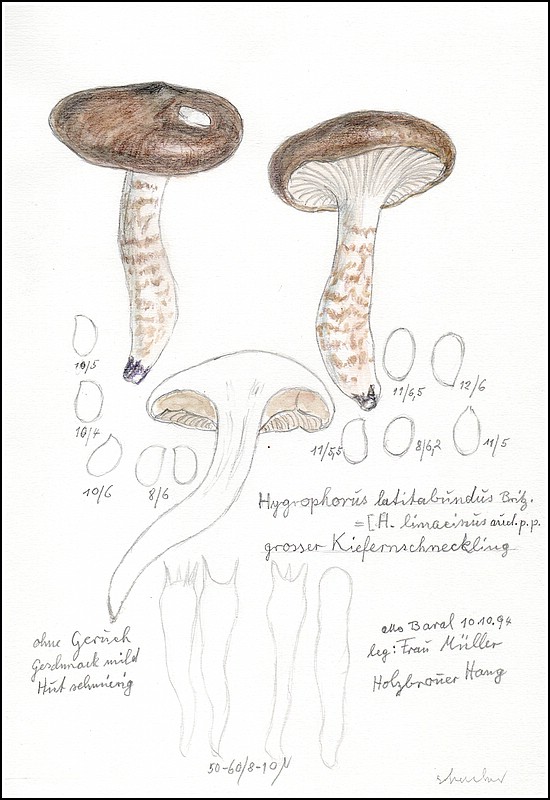 10/5
11/6,5
12/6
10/4
11/5,5
8/6,2
11/5
10/6
8/6
Hygrophorus latitabundus Britz.
=[H. limacinus auct. p.p.
grosser Kiefernschneckling
ohne Geruch
Geschmack mild
Hut schmierig
Baral 10 10.94
leg: Frau Müller
Hang
50-60/8-10 µ